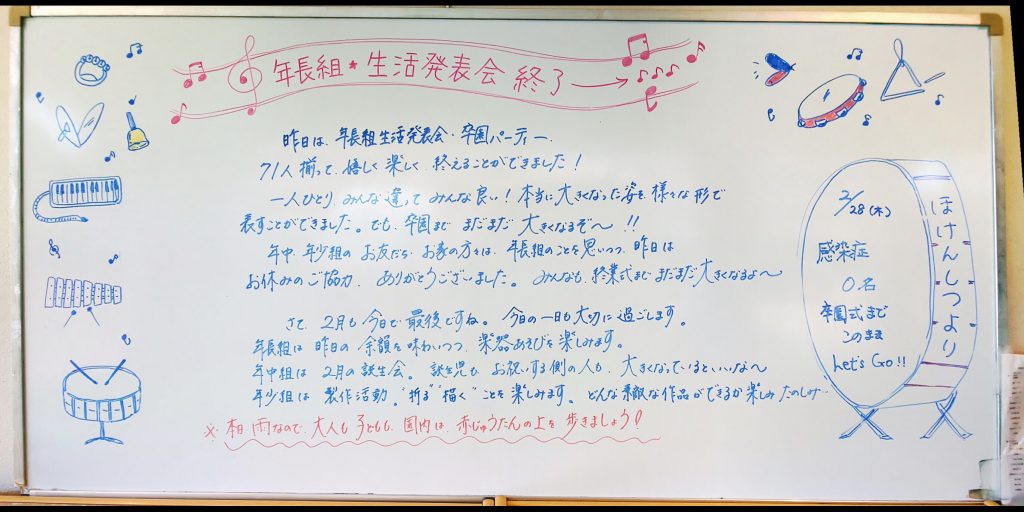 年長組★生活発表会 終了→
昨日は、年長組生活発表会・卒園パーティー、
71人揃って、嬉しく楽しく終えることができました！
一人ひとり、みんな違ってみんな良い！本当に大きくなった姿を、様々な形で
表すことができました。でも、卒園まで まだまだ 大きくなるぞ〜！！
年中、年少組の お友だち・お家の方々は、年長組のことを思いつつ、昨日は
お休みのご協力、ありがとうございました。みんなも、終業式まで まだまだ大きくなるよ〜
さて、2月も今日で最後ですね。今日の一日も大切に過ごします。
年長組は 昨日の 余韻を味わいつつ、楽器あそびを楽しみます。
年中組は 2月の誕生会。誕生児も お祝いする側の人も、大きくなっているといいな〜
年少組は 製作活動。"折る"描く"ことを楽しみます。どんな素敵な作品ができるか楽しみ たのしみ…
※本日 雨なので、大人も子どもも、園内は、赤じゅうたんの上を 歩きましょう！
ほけんしつより
2/28(木)
感染症
0名
卒園式まで
このまま
Let's Go!!